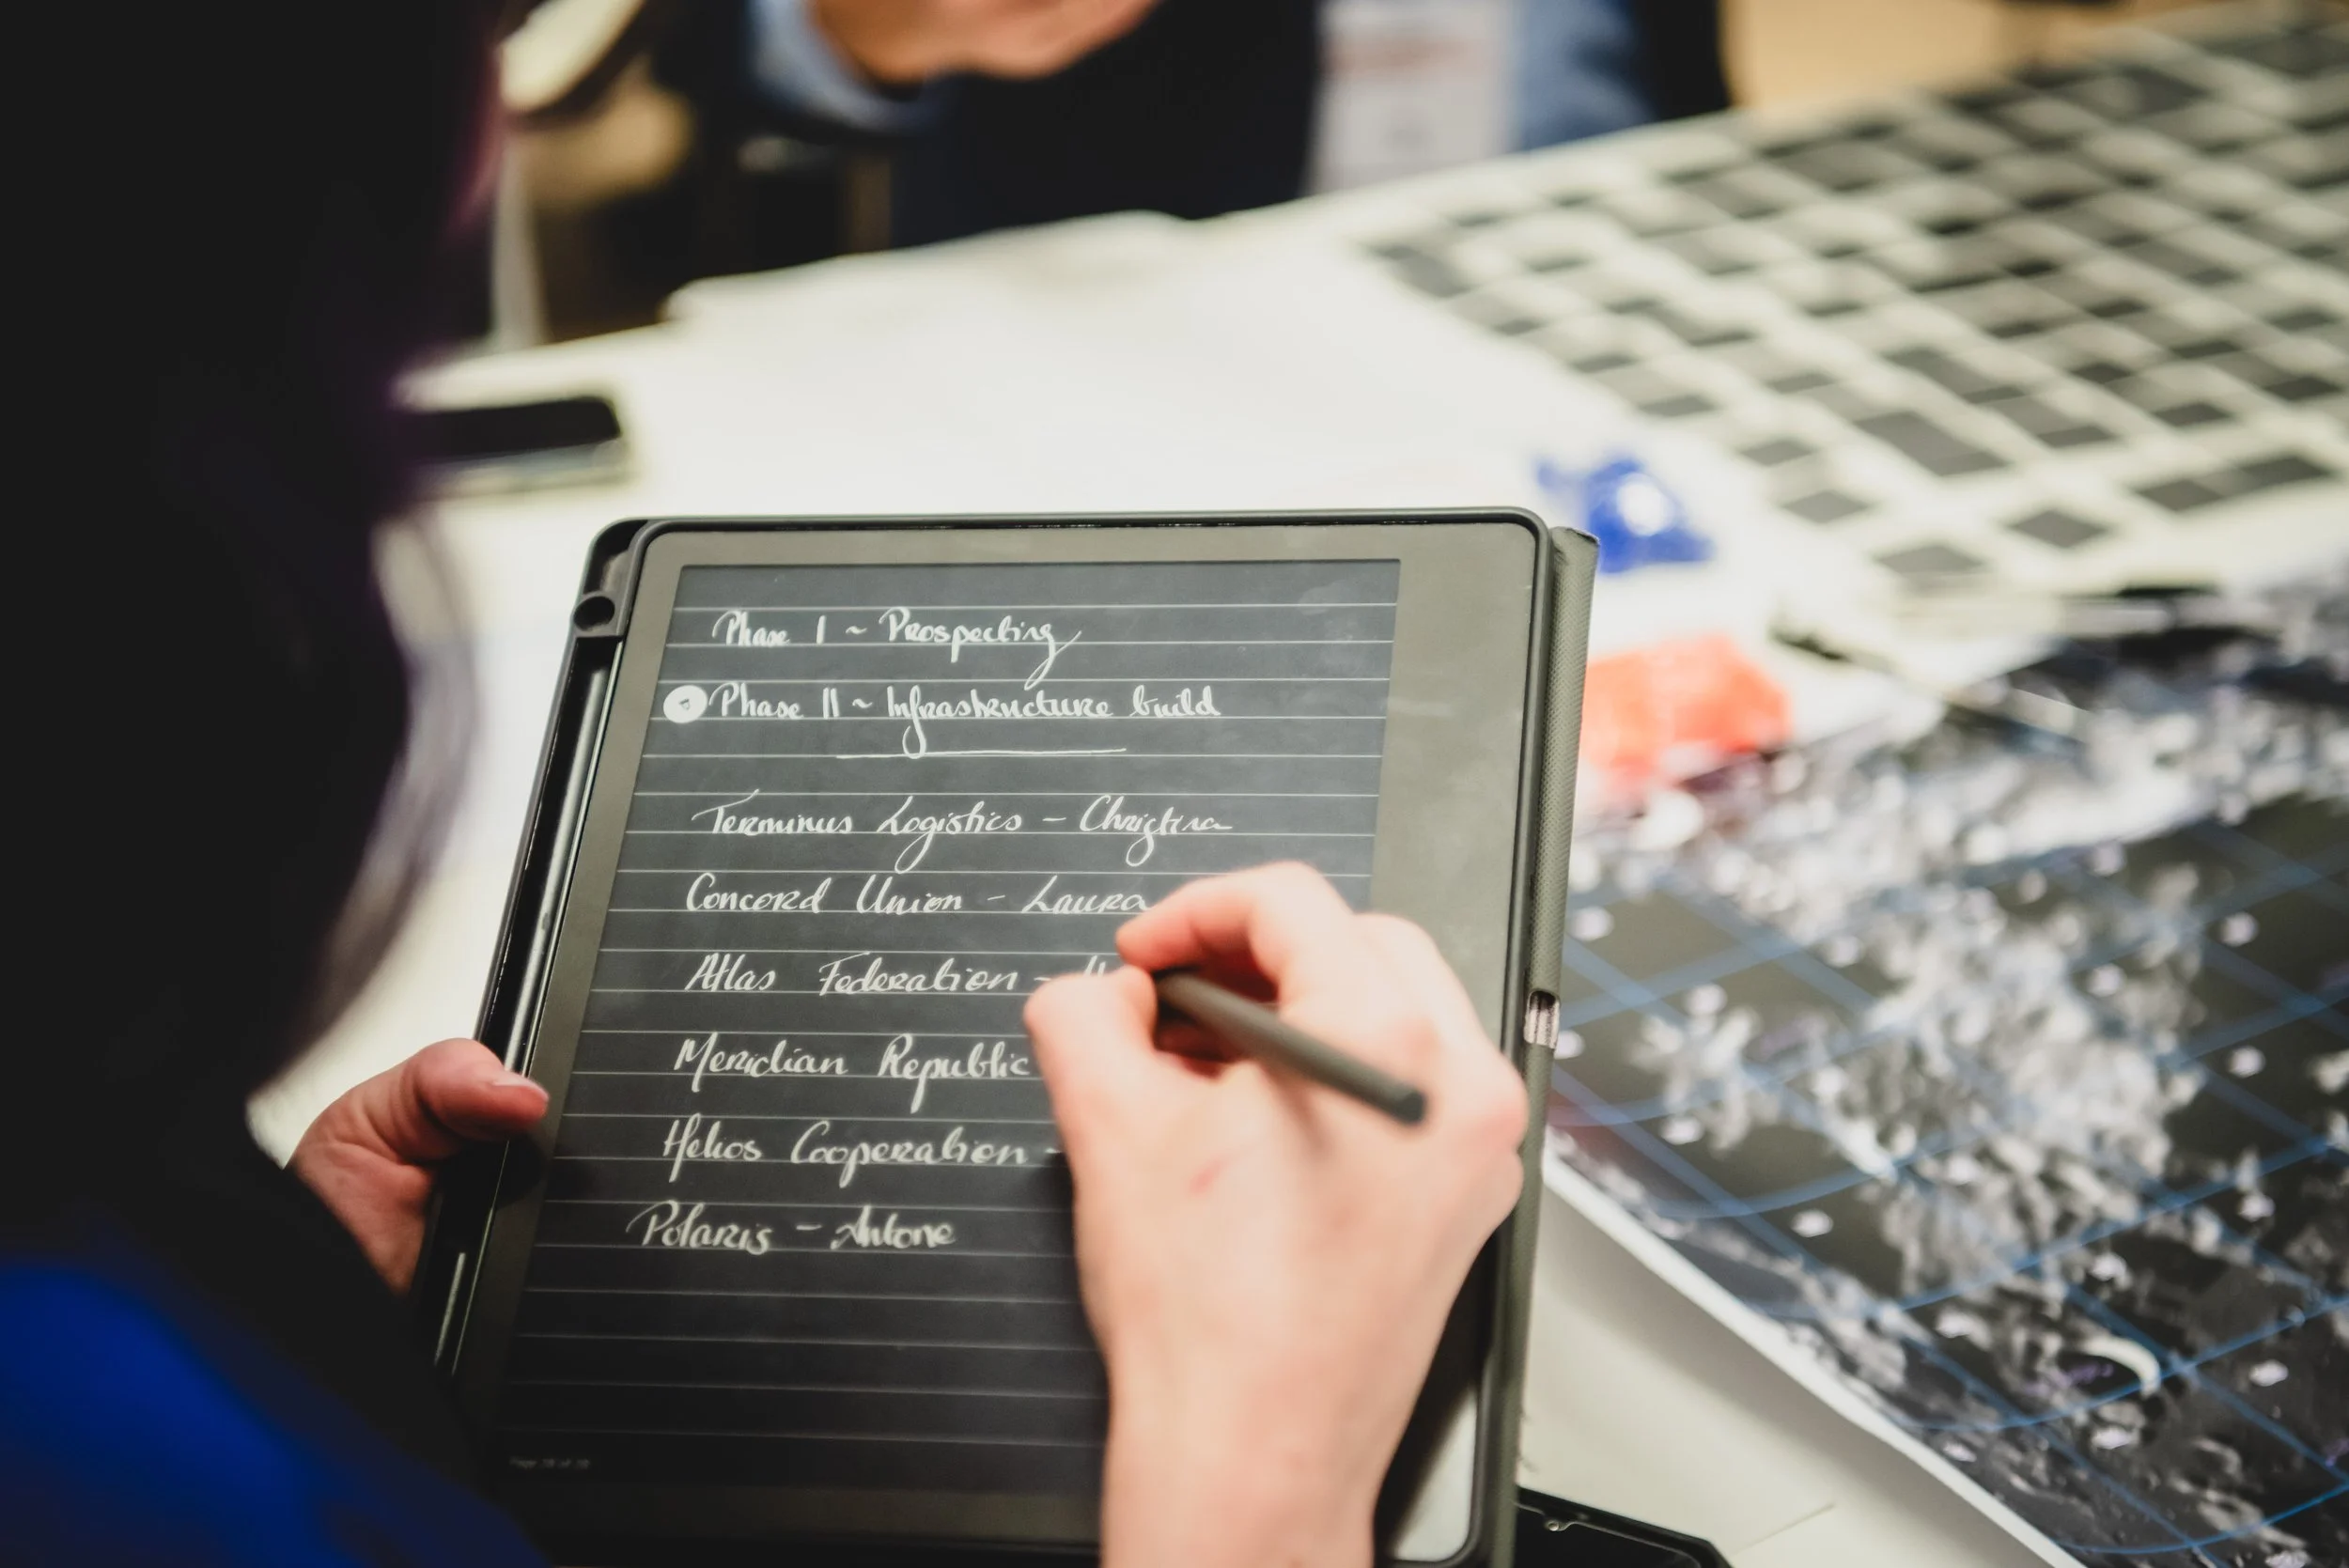 Phase I ~ Prospecting
Phase II ~ Infrastructure build
Terminus Logistics - Christina
Concord Union - Laura
Atlas Federation -
Meridian Republic
Helios Cooperation -
Polaris - Antone